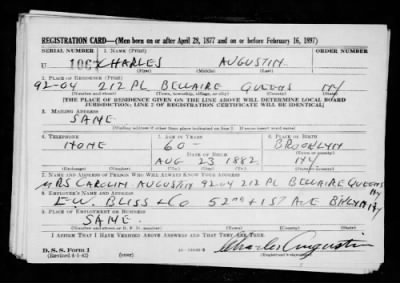 REGISTRATION CARD—(Men born on or after April 28, 1877 and on or before February 16, 1897)
SERIAL NUMBER 1. NAME (Print) ORDER NUMBER
U 106 CHARLES AUGUSTIN
(First) (Middle) (Last)
2. PLACE OF RESIDENCE (Print)
92-04 212 PL BELLAIRE QUEENS NY
(Number and street) (Town, township, village, or city) (County) (State)
[THE PLACE OF RESIDENCE GIVEN ON THE LINE ABOVE WILL DETERMINE LOCAL BOARD
JURISDICTION; LINE 2 OF REGISTRATION CERTIFICATE WILL BE IDENTICAL]
3. MAILING ADDRESS
SAME
[Mailing address if other than place indicated on line 2. If same insert word same]
4. TELEPHONE 5. AGE IN YEARS 6. PLACE OF BIRTH
NONE 60 BROOKLYN
DATE OF BIRTH
AUG 23 1882 NY
(Exchange) (Number) (Mo.) (Day) (Yr.) (State or country)
7. NAME AND ADDRESS OF PERSON WHO WILL ALWAYS KNOW YOUR ADDRESS
MRS CAROLIN AUGUSTIN 92-04 212 PL BELLAIRE QUEENS NY
8. EMPLOYER'S NAME AND ADDRESS
E.W. BLISS & CO 52ND + 1ST AVE BKLYN NY
9. PLACE OF EMPLOYMENT OR BUSINESS
SAME
(Number and street or R. F. D. number) (Town) (County) (State)
I AFFIRM THAT I HAVE VERIFIED ABOVE ANSWERS AND THAT THEY ARE TRUE.
D. S. S. Form 1
(Revised 4-1-42) Charles Augustin
(Registrant's signature)